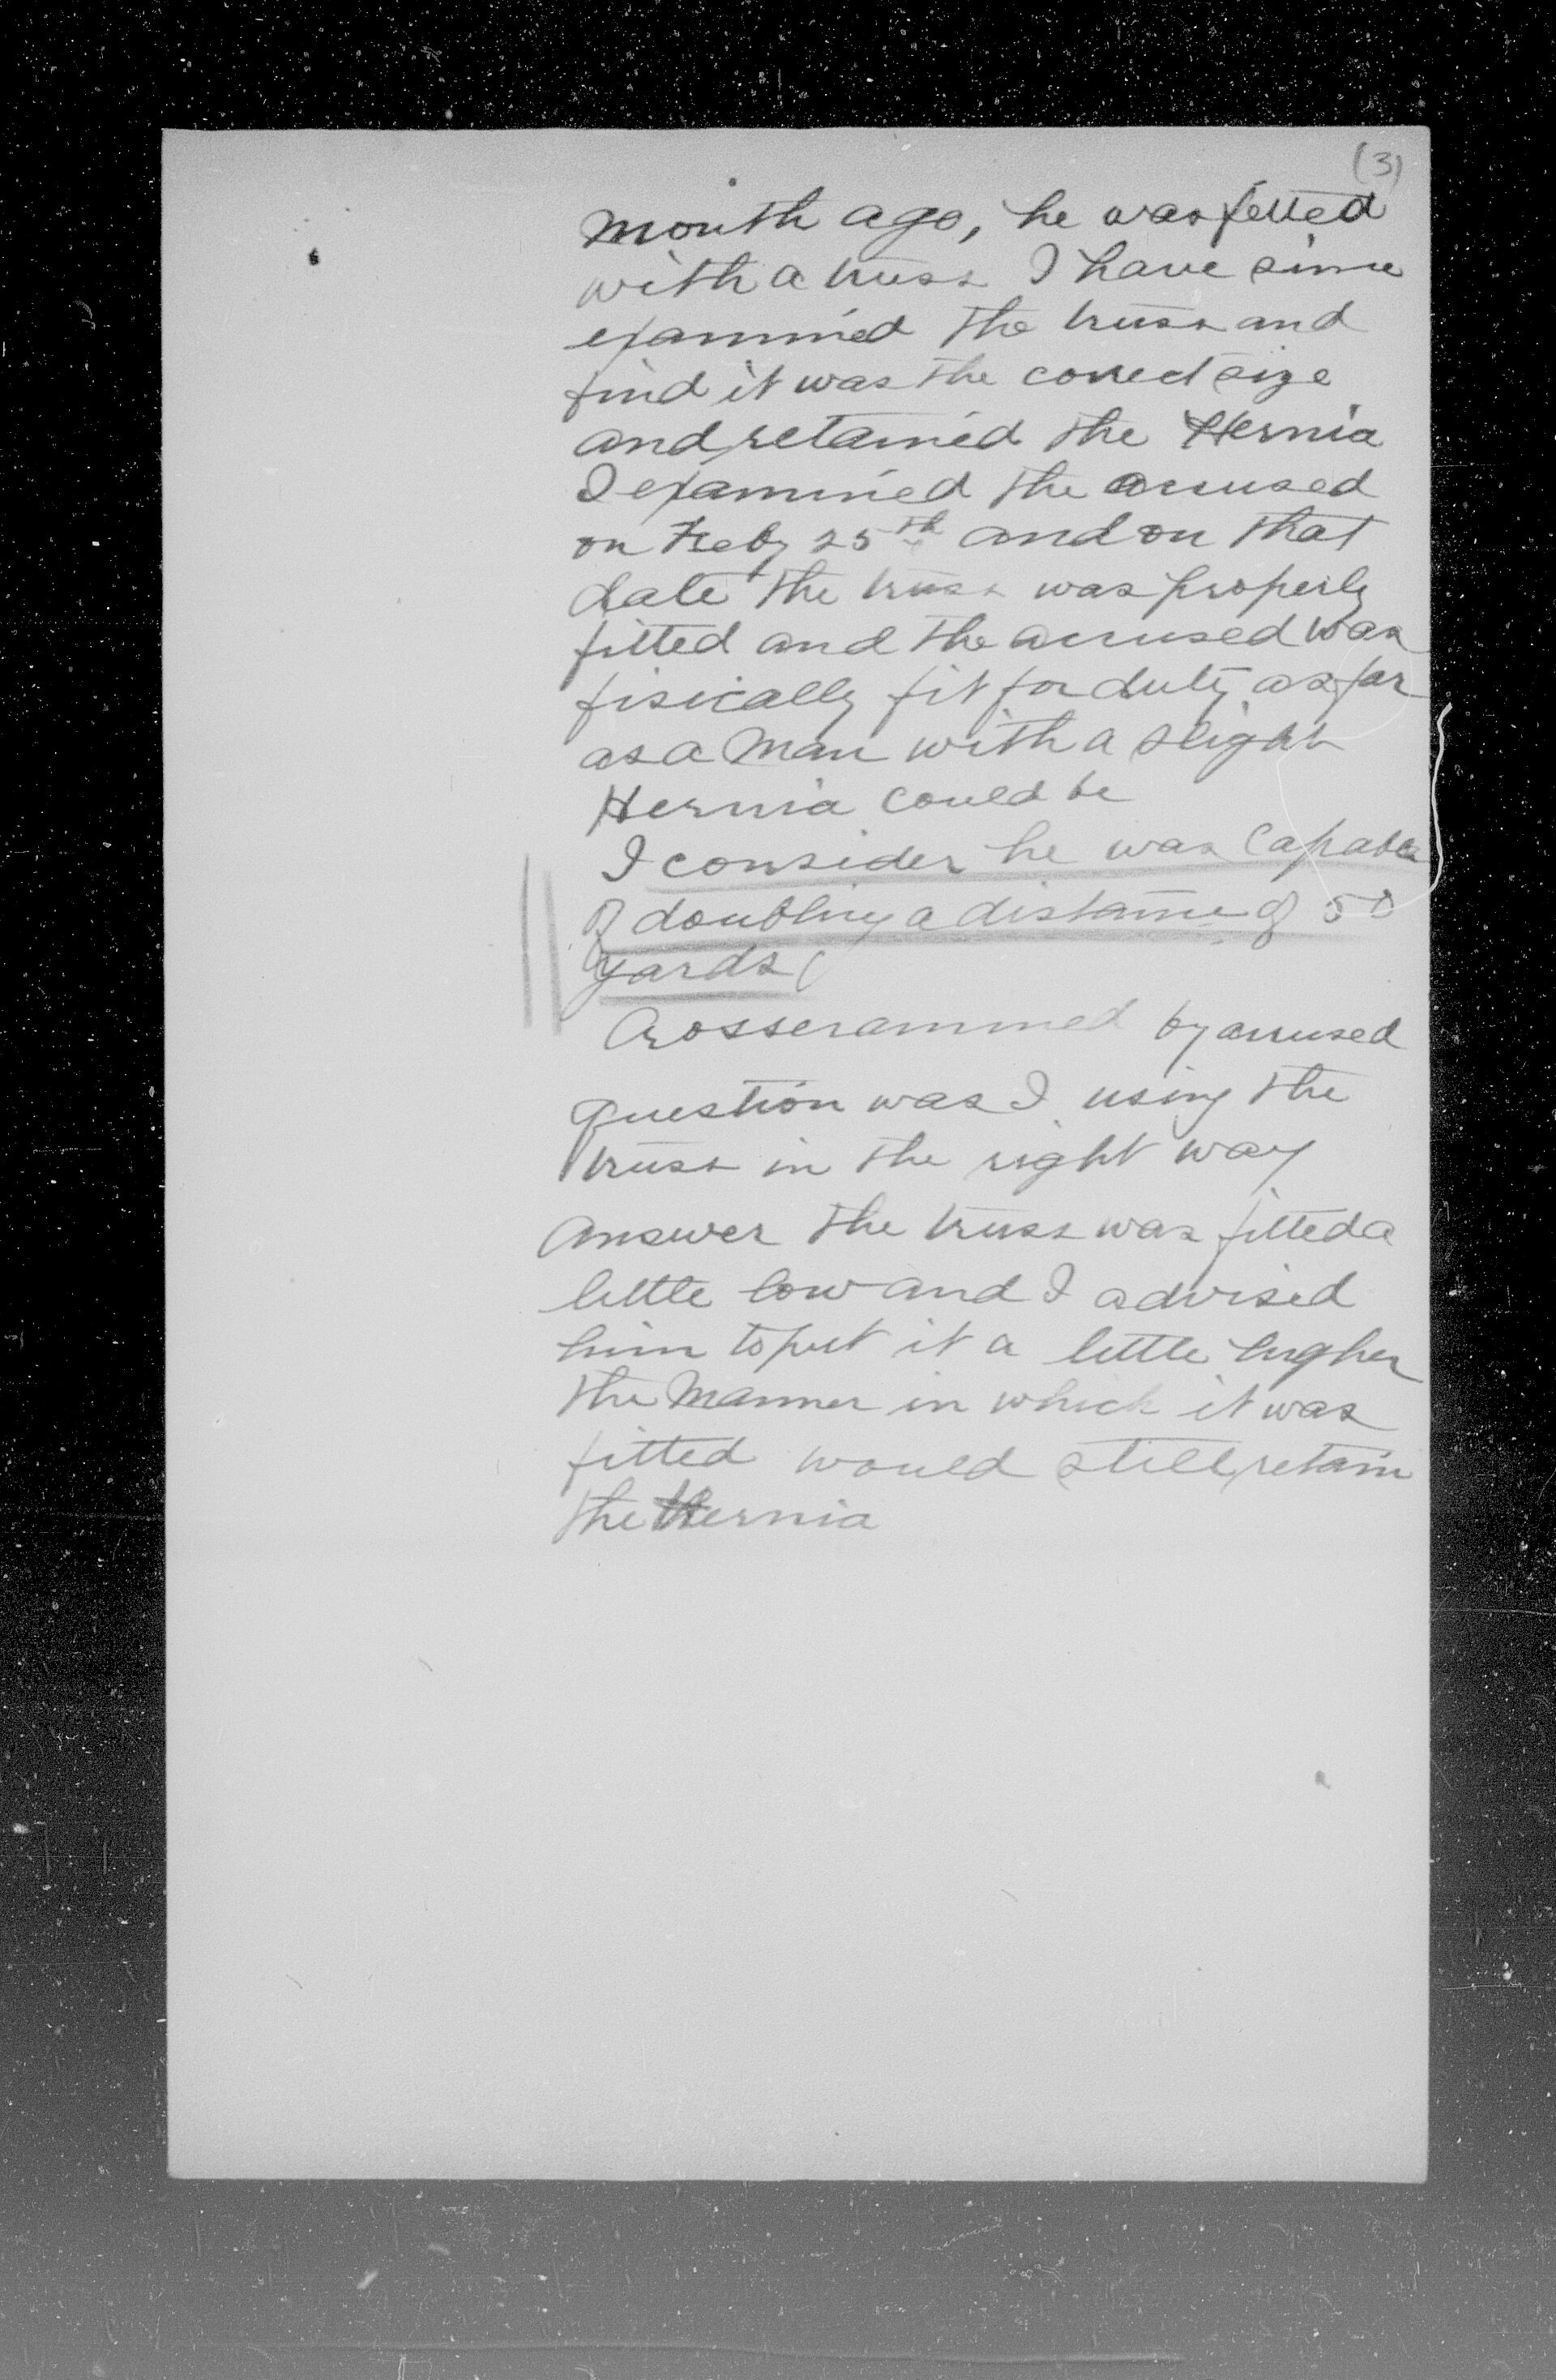 (3)
month ago, he was fitted
with a truss I have since
examined the truss and
find it was the correct size
and retained the Hernia
I examined the accused
on Feby 25th and on that
date the truss was properly
fitted and the accused was
fisically fit for duty as far
as a man with a slight
Hernia could be
I consider he was capable
of doubling a distance of 50
yards
Crossexammined by accused
question was I using the
truss in the right way
answer the truss was fitted a
little low and I advised
him to put it a little higher
the manner in which it was
fitted would still retain
the Hernia